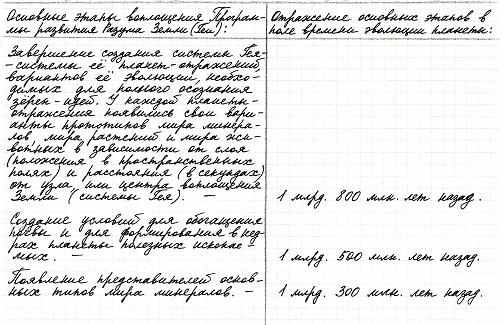 Основные этапы воплощения Програм-
мы развития Разума Земли (Геи):
Завершение создания системы Гея-
-системы её планет-отражений,
вариантов её эволюции, необхо-
димых для полного осознания
зёрен-идей. У каждой планеты-
отражения появились свои вари-
анты прототипов мира минера-
лов, мира растений и мира жи-
вотных в зависимости от слоя
(положения в пространственных
полях) и расстояния (в секундах)
от узла или центра воплощения
Земли (системы Гея). —
Создание условий для обогащения
почвы и для формирования в нед-
рах планеты полезных ископае-
мых. —
Появление представителей основ-
ных типов мира минералов. —
Отражение основных этапов в
поле времени эволюции планеты:
1 млрд. 800 млн. лет назад.
1 млрд. 500 млн. лет назад.
1 млрд. 300 млн. лет назад.